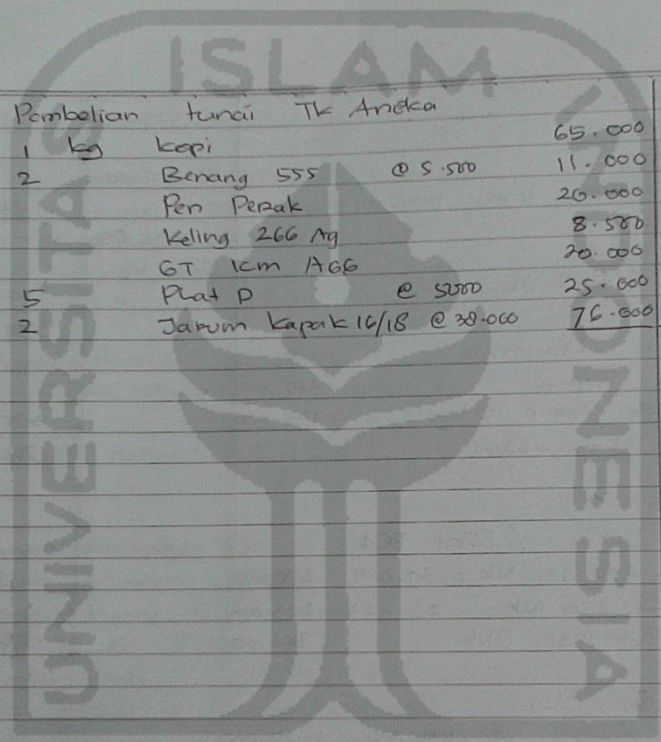 ISLAM
UNIVERSITAS
INDONESIA
Pembelian tunai Tk Aneka
1 kg kopi 65.000
2 Benang 555 @ 5.500 11.000
Pen Perak 20.000
Keling 266 Ag 8.500
GT 1cm A66 20.000
5 Plat D @ 5000 25.000
2 Jarum kapak 16/18 @ 38.000 76.000